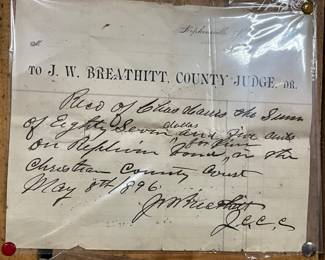 Hopkinsville,
M
TO J. W. BREATHITT, COUNTY JUDGE, DR.
Recd of Chas Davis the Sum
dollars
of Eighty Seven and Five cents
on Replivin Bond, in the
Christian County Court
May 8th 1896
JW Breathitt
J.C.C.C